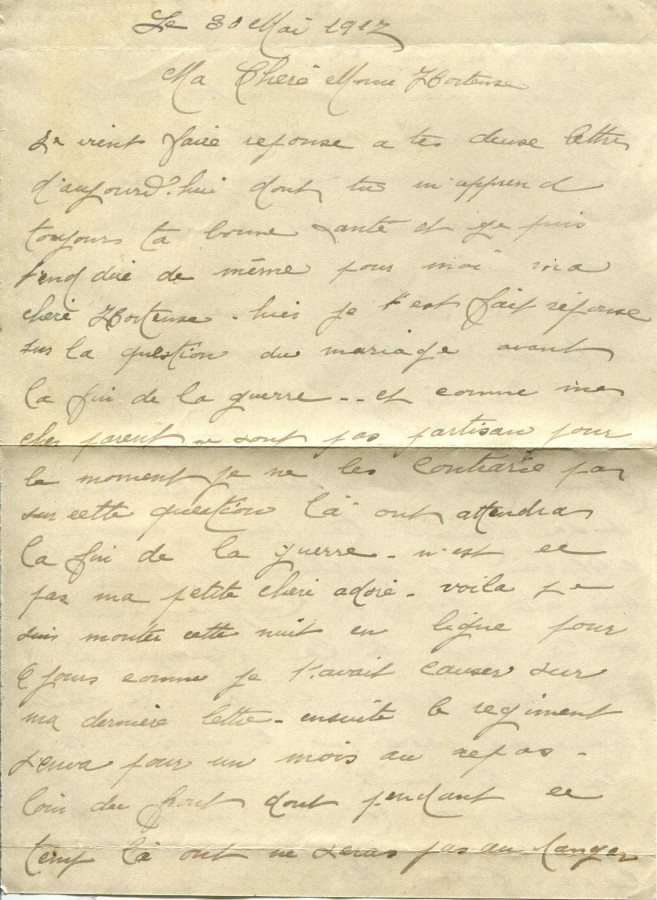 Le 30 Mai 1917
Ma Cheré Hortense
Je vient faire reponse a tes deuse lettre
d'aujourd'hui dont tu m'apprend
toujours ta bonne santé et je puis
t'end dire de même pour moi ma
cheré Hortense - hier je t'est fait réponse
sur la question du mariage avant
la fin de la guerre -- et comme mes
cher parent ne sont pas partisan pour
le moment je ne les contrarie pas
sur cette question là ont attendra
la fin de la guerre - n'est ce
pas ma petite cheré adoré - voila je
suis monter cette nuit en ligne pour
jours comme je t'avait causer sur
ma derniere lettre - ensuite le regiment
s'enva pour un mois au repos -
loin du front dont pendant ce
temp là ont ne seras pas au danger